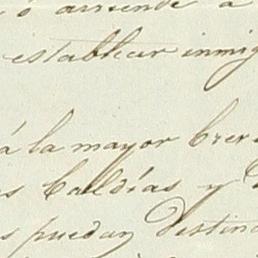 ó arriende a
establecer inmig
á la mayor brev
s baldías y
s puedan destina